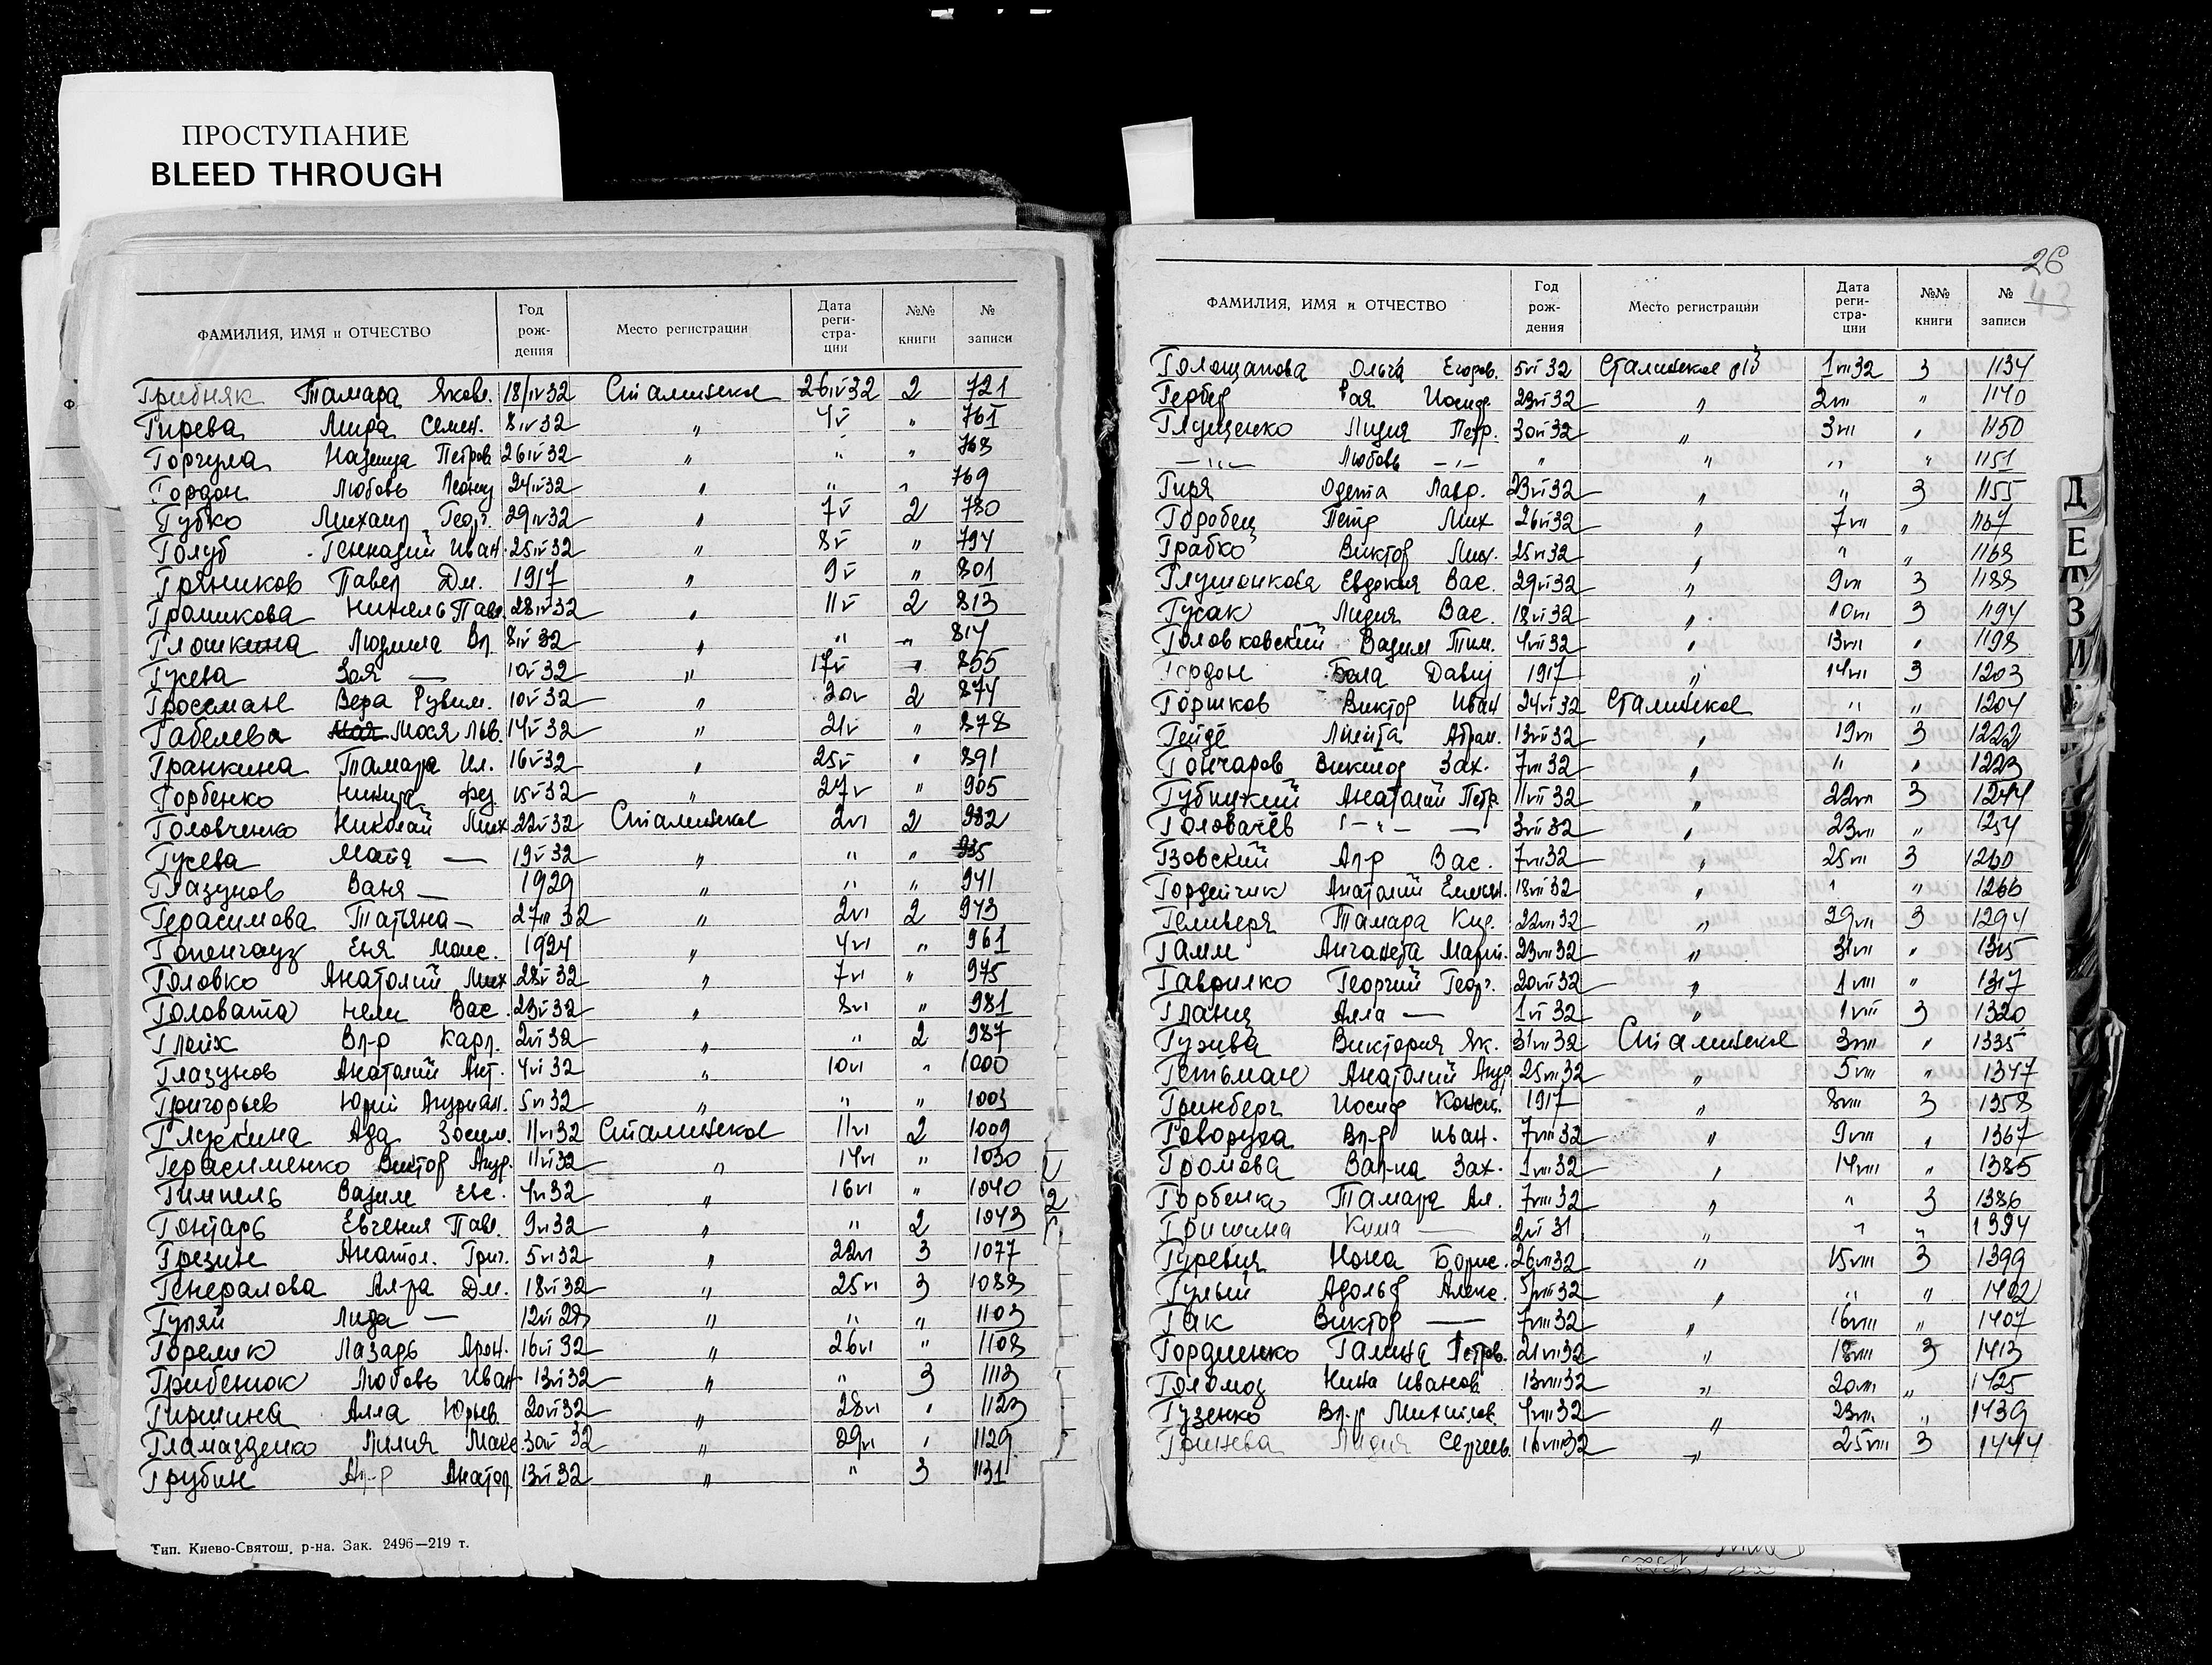 ПРОСТУПАНИЕ
BLEED THROUGH
ФАМИЛИЯ, ИМЯ и ОТЧЕСТВО Год рож- дения Место регистрации Дата реги- стра- ции №№ книги № записи
Грибняк Тамара Яковл. 18/IV 32 Сталинское 26 IV 32 2 721
Гирева Лира Семен. 8 IV 32 " 4 V " 761
Горгула Надежда Петров. 26 IV 32 " " " 763
Гордон Любовь Леонид 24 IV 32 " " " 769
Губко Михаил Георг. 29 IV 32 " 7 V 2 780
Голуб Геннадий Иван. 25 IV 32 " 8 V " 794
Гряников Павел Дм. 1917 " 9 V " 801
Громикова Нинель Павл. 28 IV 32 " 11 V 2 813
Глошкина Людмила Вл. 8 IV 32 " " " 814
Гусева Зоя — 10 V 32 " 17 V " 855
Гроссман Вера Рувим. 10 V 32 " 20 V 2 874
Габелева Мося Льв. 14 V 32 " 21 V " 878
Гранкина Тамара Ил. 16 V 32 " 25 V " 891
Горбенко Никита Фед. 15 V 32 " 27 V " 905
Головченко Николай Мих. 22 V 32 Сталинское 2 VI 2 932
Гусева Майя — 19 V 32 " " " 935
Глазунов Ваня — 1929 " " " 941
Герасимова Татьяна — 27 III 32 " 2 VI 2 943
Гопенгауз Еня Моис. 1924 " 4 VI " 961
Головко Анатолий Мих. 28 V 32 " 7 VI " 975
Головата Нели Вас. 29 V 32 " 8 VI " 981
Глейх Вл-р Карл. 2 VI 32 " " 2 987
Глазунов Анатолий Ант. 4 VI 32 " 10 VI " 1000
Григорьев Юрий Андриан. 5 VI 32 " " " 1003
Глузкина Ада Зосим. 11 VI 32 Сталинское 11 VI 2 1009
Герасименко Виктор Андр. 11 VI 32 " 14 VI " 1030
Гимпель Вадим Евс. 4 VI 32 " 16 VI " 1040
Гонтарь Евгения Павл. 9 VI 32 " " 2 1043
Грезин Анатол. Григ. 5 VI 32 " 22 VI 3 1077
Генералова Ал-ра Дм. 18 VI 32 " 25 VI 3 1088
Гуляй Лида — 12 VI 28 " " " 1103
Горелик Лазарь Арон. 16 VI 32 " 26 VI " 1108
Грибенюк Любовь Иван 13 VI 32 " " 3 1113
Гиршина Алла Юрьев. 20 VI 32 " 28 VI " 1123
Гламазденко Лилия Макс. 30 V 32 " 29 VI " 1129
Грубин Ал-р Анатол. 13 VI 32 " " 3 1131
Тип. Киево-Святош. р-на. Зак. 2496—219 т.
26
43
ФАМИЛИЯ, ИМЯ и ОТЧЕСТВО Год рож- дения Место регистрации Дата реги- стра- ции №№ книги № записи
Голощапова Ольга Егоров. 5 VI 32 Сталинское 1 VII 32 3 1134
Гербер Рая Иосиф. 23 VI 32 " 2 VII " 1140
Глущенко Лидия Петр. 30 VI 32 " 3 VII " 1150
—"— Любовь —"— " " " " 1151
Гиря Одета Лавр. 23 VI 32 " " 3 1155
Горобец Петр Мих 26 VI 32 " 7 VII " 1167
Грабко Виктор Мих. 25 VI 32 " " " 1168
Глушонкова Евдокия Вас. 29 VI 32 " 9 VII 3 1188
Гусак Лидия Вас. 18 VI 32 " 10 VII 3 1194
Головковский Вадим Тим. 4 VII 32 " 13 VII " 1198
Гордон Давид 1917 " 14 VII 3 1203
Горшков Виктор Иван 24 VI 32 Сталинское " " 1204
Гейде Абрам. 13 VII 32 " 19 VII 3 1222
Гончаров Виктор Зах. 7 VII 32 " " " 1223
Губицкий Анатолий Петр. 11 VII 32 " 22 VII 3 1244
Головачёв —"— — 3 VII 32 " 23 VII " 1254
Гзовский Ал-р Вас. 7 VII 32 " 25 VII 3 1260
Гордейчик Анатолий Емельян. 18 VII 32 " " " 1266
Геливеря Тамара Кир. 22 VII 32 " 29 VII 3 1294
Гамм Март. 23 VII 32 " 31 VII " 1315
Гаврилко Георгий Георг. 20 VII 32 " 1 VIII " 1317
Гланц Алла — 1 VI 32 " 1 VIII 3 1320
Гузива Виктория Як. 31 VII 32 Сталинское 3 VIII " 1335
Гетьман Анатолий Андр 25 VII 32 " 5 VIII " 1347
Гринберг Иосиф 1917 " 8 VIII 3 1358
Говоруха Вл-р Иван. 7 VIII 32 " 9 VIII " 1367
Громова Вал-на Зах. 1 VIII 32 " 14 VIII " 1385
Горбенко Тамара Ал. 7 VIII 32 " " 3 1386
Гришина Кима — 2 VI 31 " " " 1394
Гуревич Нона Борис. 26 VII 32 " 15 VIII 3 1399
Гулый Адольф Алекс. 5 VIII 32 " " " 1402
Гак Виктор — 7 VIII 32 " 16 VIII " 1407
Гордиенко Галина Петров. 21 VII 32 " 18 VIII 3 1413
Голомоз Нина Иванов 13 VIII 32 " 20 VIII " 1425
Гузенко Вл-р Михайлов. 4 VIII 32 " 23 VIII " 1439
Гринева Лидия Сергеев. 16 VIII 32 " 25 VIII 3 1444
Д
Е
З
И